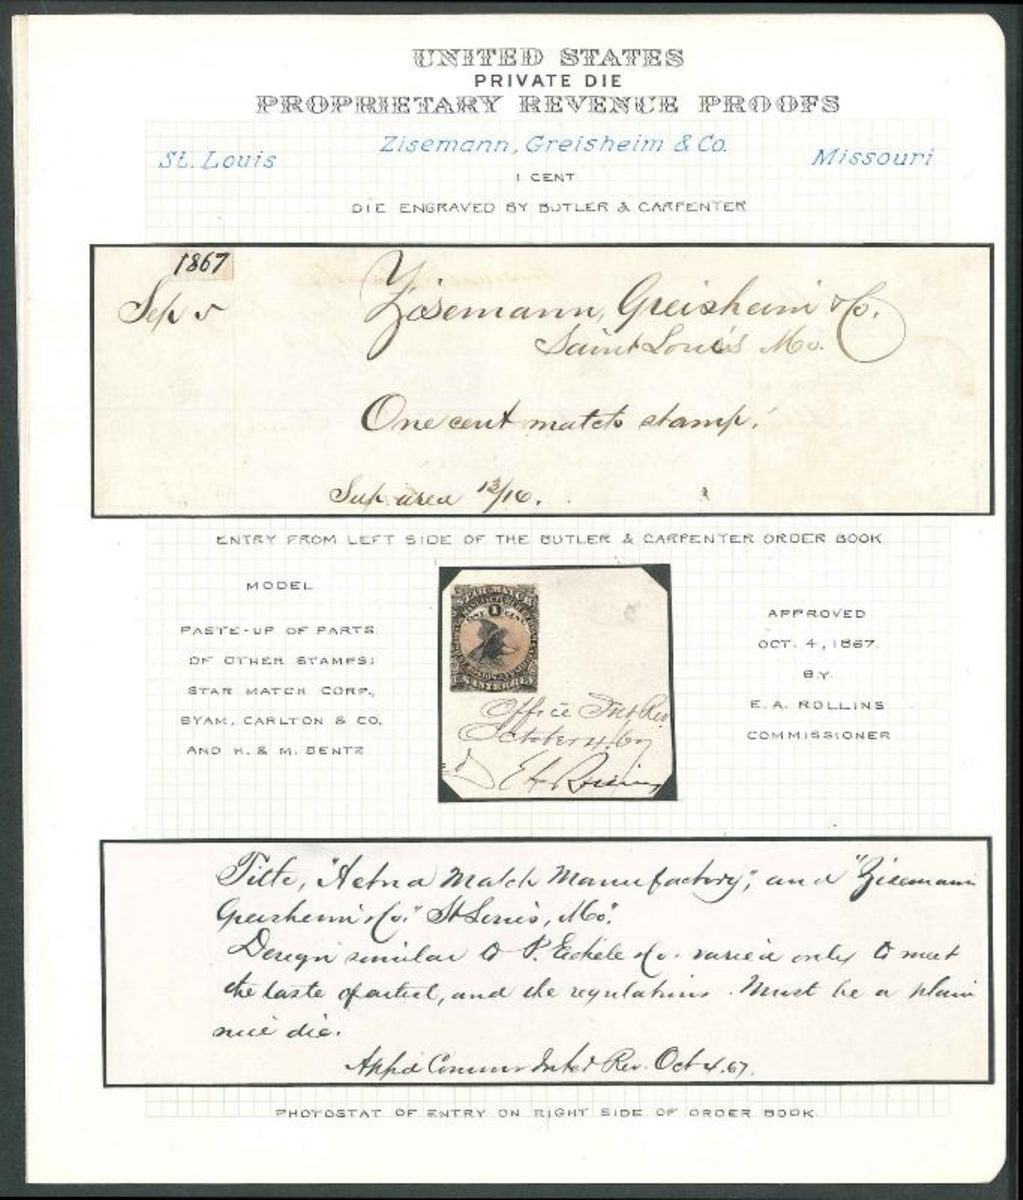 UNITED STATES
PRIVATE DIE
PROPRIETARY REVENUE PROOFS
St. Louis
Zisemann, Greisheim & Co.
Missouri
1 CENT
DIE ENGRAVED BY BUTLER & CARPENTER
1867
Sep 5
Zisemann, Greisheim & Co.
Saint Louis Mo.
One cent match stamp.
Sup. area 13/16.
ENTRY FROM LEFT SIDE OF THE BUTLER & CARPENTER ORDER BOOK
MODEL
PASTE-UP OF PARTS
OF OTHER STAMPS:
STAR MATCH CORP.,
BYAM, CARLTON & CO.
AND H. & M. BENTZ
STAR MATCH
ONE 1 CENT
Office Int Rev
October 4. 67
E A Rollins
APPROVED
OCT. 4, 1867.
BY
E. A. ROLLINS
COMMISSIONER
Title, "Aetna Match Manufactory", and "Zisemann
Greisheim & Co." St Louis, Mo."
Design similar to P. Eichele & Co. varied only to meet
the taste of artist, and the regulations. Must be a plain
nice die.
App'd Commr Inter Rev. Oct 4. 67.
PHOTOSTAT OF ENTRY ON RIGHT SIDE OF ORDER BOOK